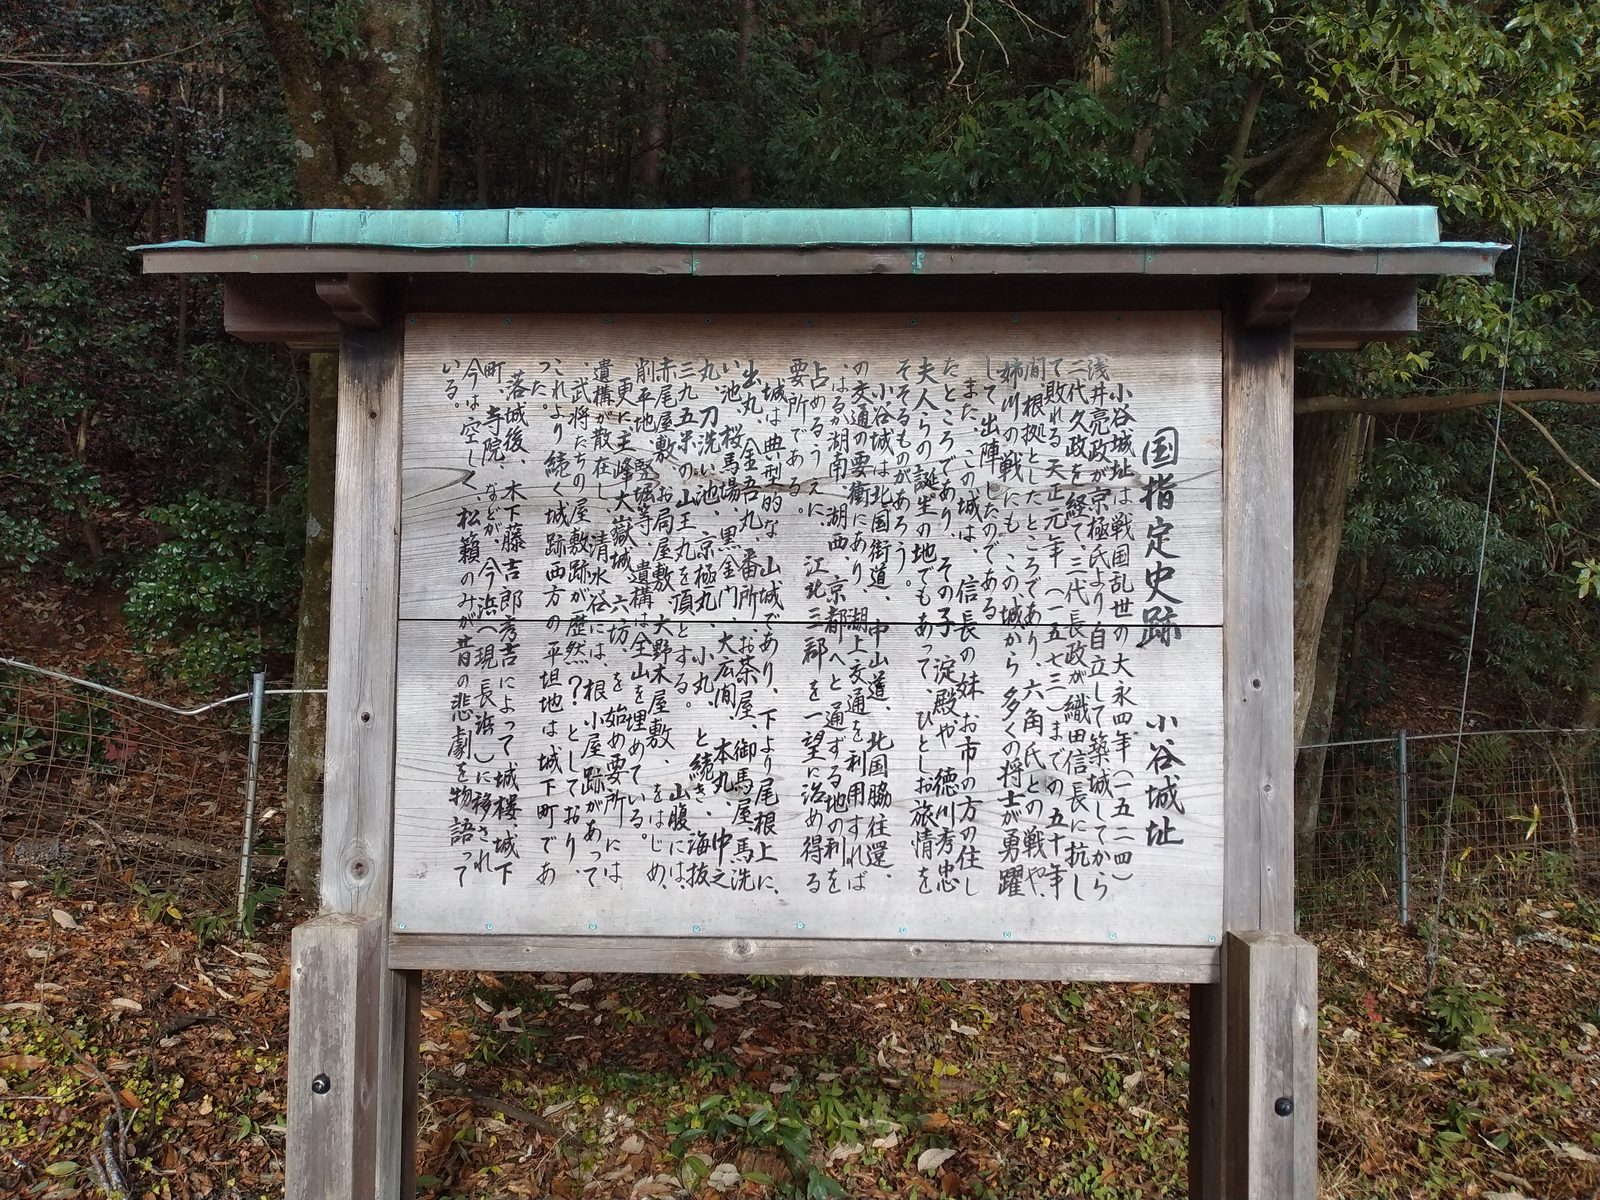 国指定史跡 小谷城址
小谷城址は戦国乱世の大永四年(一五二四)
浅井亮政が京極氏より自立して築城してから
二代久政を経て、三代長政が織田信長に抗し
て敗れる天正元年(一五七三)までの五十年
間根拠としたところであり、六角氏との戦や、
姉川の戦にも、この城から多くの将士が勇躍
して出陣したのである
また、この城は、信長の妹お市の方の住し
たところであり、その子淀殿や、徳川秀忠
夫人らの誕生の地でもあって、ひとしお旅情を
そそるものがあろう。
小谷城は北国街道、中山道、北国脇往還、
の交通の要衝にあり、湖上交通を利用すれば
、はるか湖南、湖西、京都へと通ずる地の利を
占めるうえに、江北三郡を一望に治め得る
要所である。
城は典型的な山城であり、下より尾根上に、
出丸、金吾丸、番所、お茶屋、御馬屋、馬洗
い池、桜馬場、黒金門、大広間、本丸、中之
丸、刀洗い池、京極丸、小丸、と続き、海抜
三九五米の山王丸を頂とする。山腹には、
赤尾屋敷、お局屋敷、大野木屋敷、をはじめ、
削平地、竪堀等、遺構は全山を埋めている。
更に主峰大嶽城、六坊、を始め要所には
遺構が散在し、清水谷には、根小屋跡があって
、武将たちの屋敷跡が歴然?としており、
これより続く城跡西方の平坦地は城下町であ
った。
落城後、木下藤吉郎秀吉によって城楼、城下
町、寺院、などが、今浜へ(現長浜)に移され
今は空しく、松籟のみが昔の悲劇を物語って
いる。